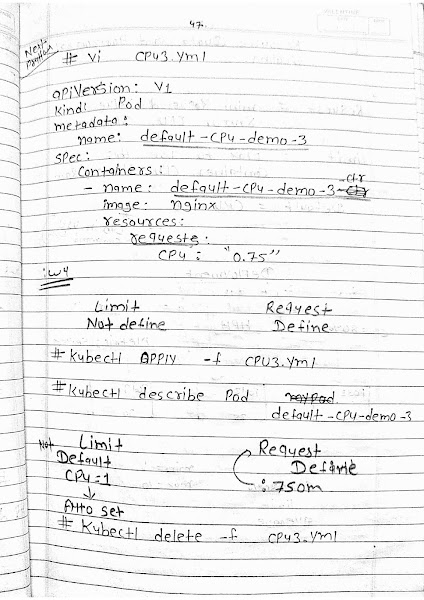 47.
Next
Method
# vi CPU3.yml
apiVersion: V1
Kind: Pod
metadata:
name: default-CPU-demo-3
Spec:
Containers:
- name: default-CPU-demo-3-ctr
image: nginx
resources:
requests:
CPU: "0.75"
:wq
Limit Request
Not define Define
# Kubectl APPlY -f CPU3.yml
# Kubectl describe Pod
default-CPU-demo-3
Not Limit Request
Default Define
CPU=1 : 750m
Auto set
# Kubectl delete -f CPU3.yml